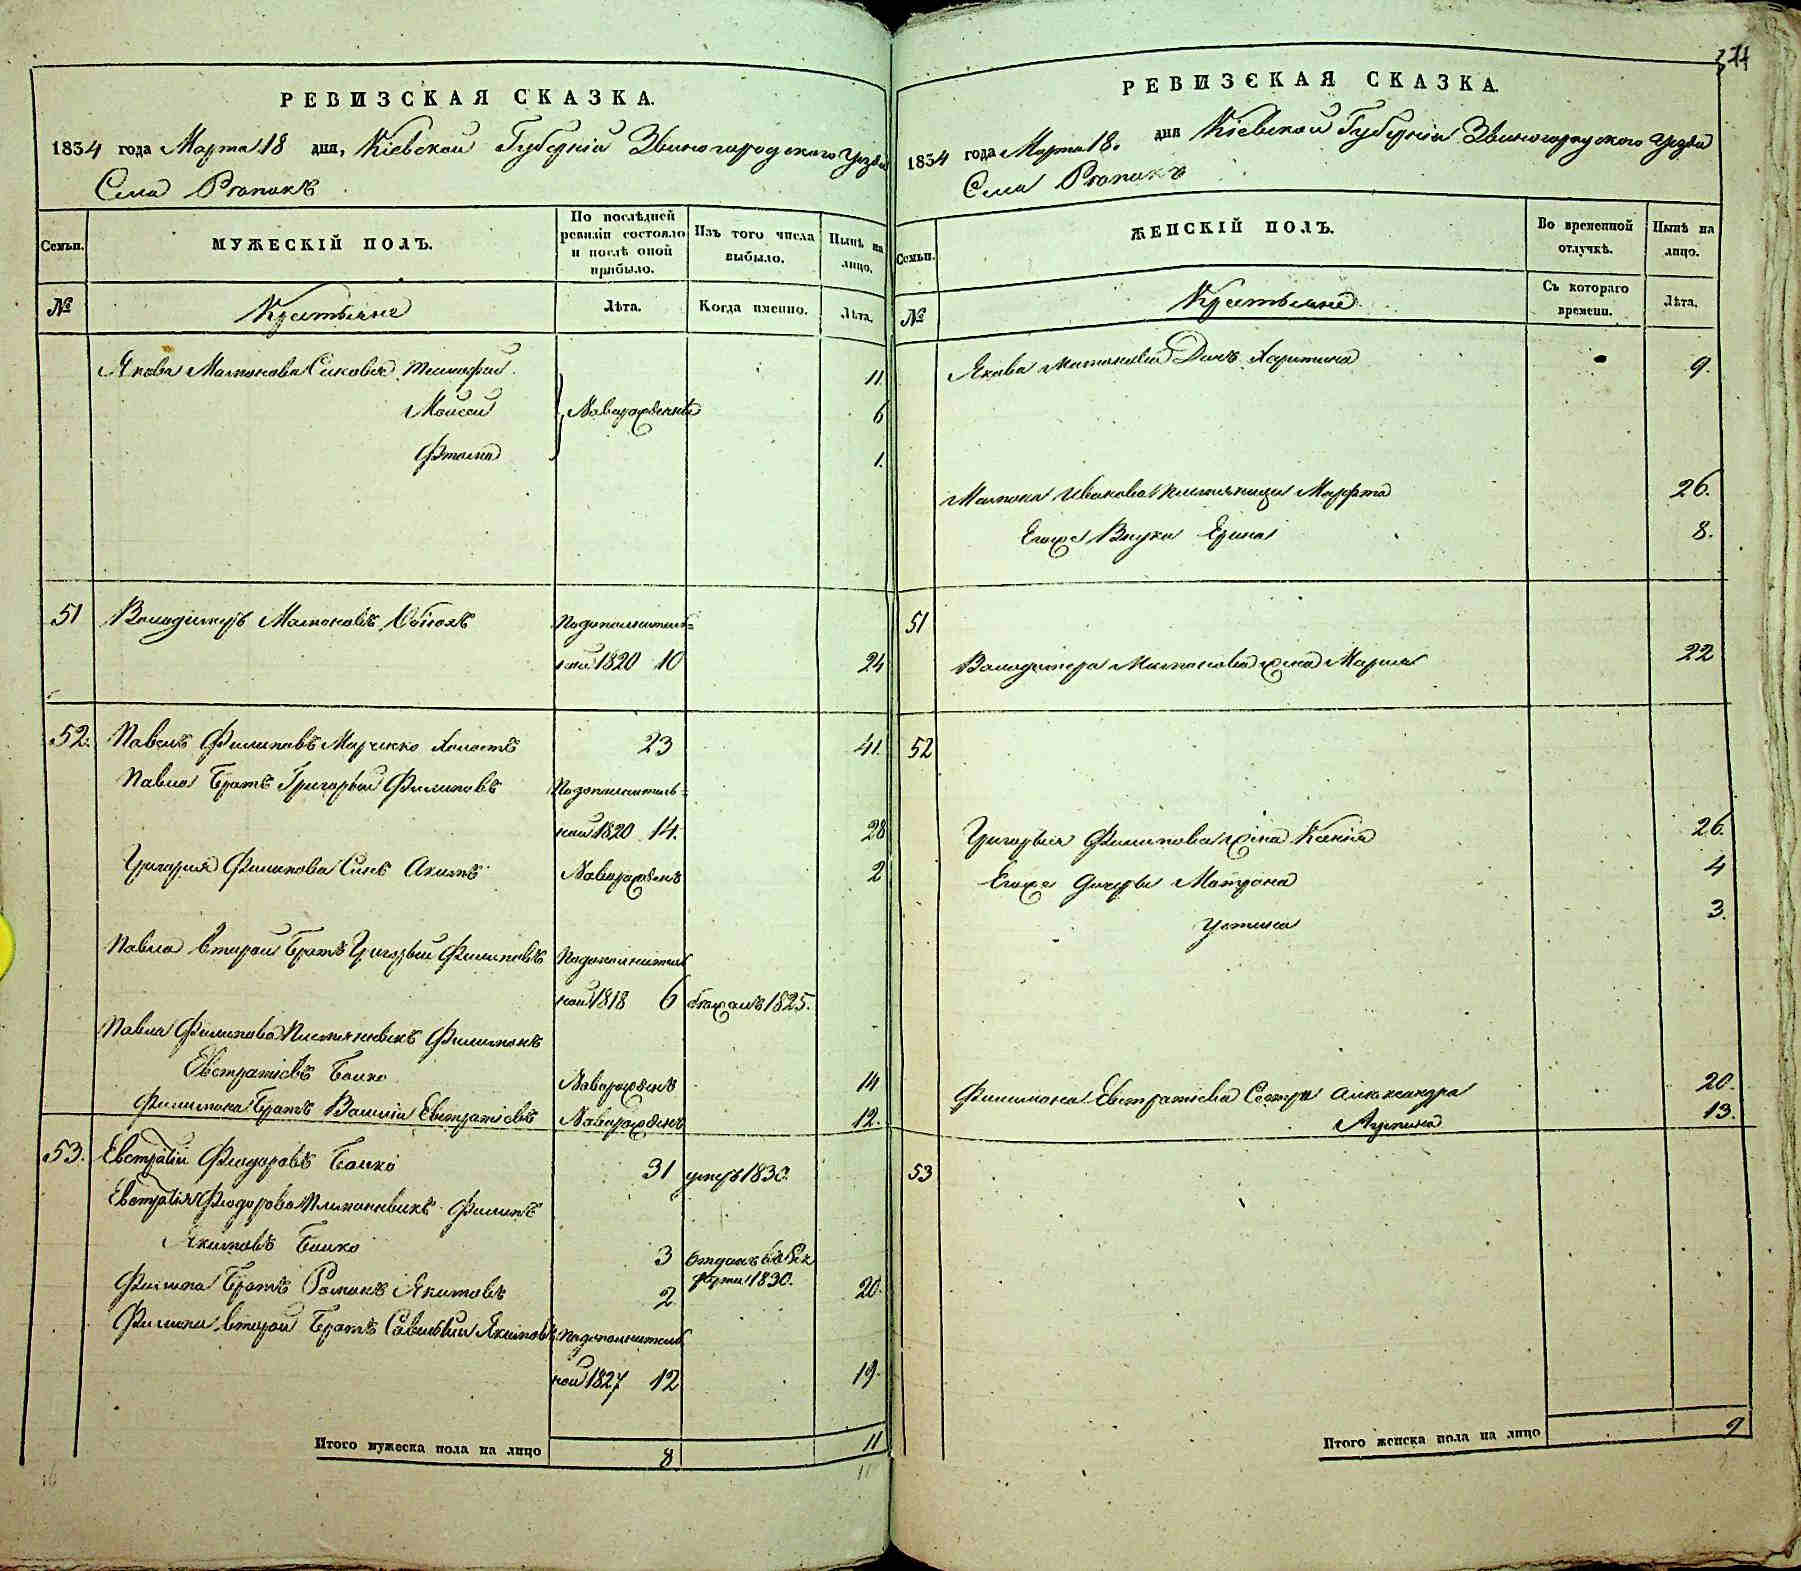 371
РЕВИЗСКАЯ СКАЗКА.
1834 года Марта 18 дня, Кіевской Губерніи Звиногородского Уезда
Села Ропокъ
Семьи.
МУЖЕСКІЙ ПОЛЪ.
По послѣдней ревизіи состояло и послѣ оной прибыло.
Изъ того числа выбыло.
Нынѣ на лицо.
№
Крестьяне
Лѣта.
Когда именно.
Лѣта.
Якова Матвокова Тимофей 11.
Мойсей Новорожденые 6
Фтома 1.
51 Володимуръ Подополнитель=
ной 1820 10 24
52. Павелъ Филиповъ Марченко холостъ 23 41.
Павла братъ Григорьей Филиповъ Подополнитель=
ной 1820 14. 28
Григория Филипова Синъ Акимъ Новорожденъ 2
Павла второй братъ Григорьей Филиповъ Подополнитель
ной 1818 6 1825.
Павла Филипова Племянникъ Филимонъ
Евстратіевъ Бойко Новорожденъ 14
Филимона братъ Василіи Евстратіевъ Новорожденъ 12.
53. Евстратій Феодоровъ Бойко 31 умеръ 1830.
Евстратія Феодорова Племянникъ Филипъ
Якимовъ Бойко 3 отданъ въ Рек
руты 1830.
Филипа братъ Романъ Якимовъ 2 20.
Филипа второй братъ Савелий Якимовъ Подополнитель
ной 1827 12 19.
Итого мужеска пола на лицо 8 11
РЕВИЗСКАЯ СКАЗКА.
1834 года Марта 18. дня Кіевской Губерніи Звиногородского Уезда
Села Ропокъ
Семьи.
ЖЕНСКІЙ ПОЛЪ.
Во временной отлучкѣ.
Нынѣ на лицо.
№
Крестьяне
Съ котораго времени.
Лѣта.
Якова Дочь Харитина 9.
Ивакова племяница Марфта 26.
Егоже Внука Ерина 8.
51
Володимера жена Мария 22
52
Григорыя Филипова жена Ксенія 26.
Егоже дочеры Матрона 4
Устина 3.
Филимона Евстратіева Сестри Александра 20.
13.
53
Итого женска пола на лицо 9